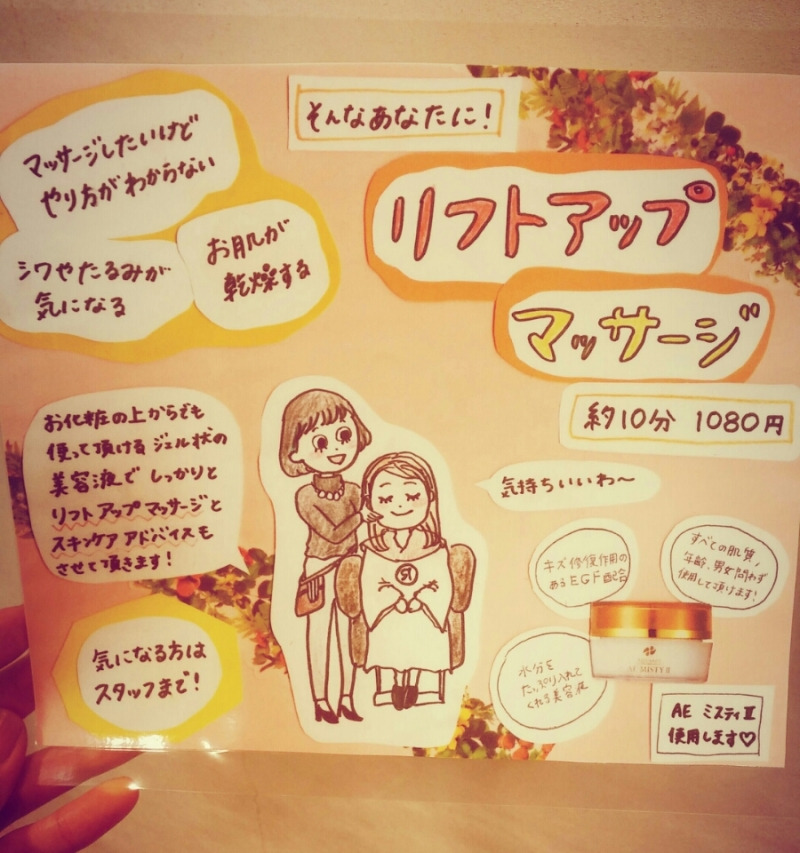 マッサージしたいけど
やり方がわからない
シワやたるみが
気になる
お肌が
乾燥する
そんなあなたに!
リフトアップ
マッサージ
約10分 1080円
お化粧の上からでも
使って頂けるジェル状の
美容液で しっかりと
リフトアップマッサージと
スキンケアアドバイスも
させて頂きます!
気になる方は
スタッフまで!
気持ちいいわ〜
キズ修復作用の
あるEGF配合
すべての肌質、
年齢、男女問わず
使用して頂けます!
水分を
たっぷり入れて
くれる美容液
AE MISTY II
AE ミスティⅡ
使用します♡